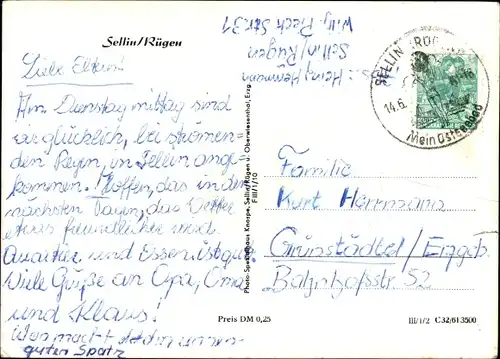 Sellin/Rügen
Liebe Eltern!
Am Dienstag mittag sind
wir glücklich, bei strömen-
den Regen, in Sellin ange-
kommen. Hoffen, das in den
nächsten Tagen, das Wetter
etwas freundlicher wird.
Quartier und Essen ist gut.
Viele Grüße an Opa, Oma
und Klaus!
Was macht
guten Spatz
Abs.: Heinz Herrmann
Sellin/Rügen
Wilh. Pieck Str. 31
SELLIN
14.6.
Mein Ostseebad
Photo-Spezialhaus Knospe, Sellin/Rügen u. Oberwiesenthal, Erzg.
F III/1/10
Familie
Kurt Herrmann
Grünstädtel/Erzgeb.
Bahnhofsstr. 52
Preis DM 0,25
III/1/2 C32/613500